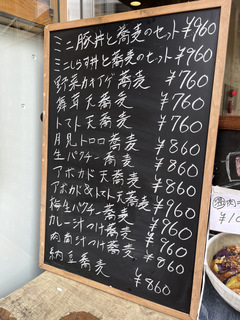 ミニ豚丼と蕎麦のセット ¥960
ミニしらす丼と蕎麦のセット ¥960
野菜カキアゲ蕎麦 ¥760
舞茸天蕎麦 ¥760
トマト天蕎麦 ¥760
月見トロロ蕎麦 ¥860
生パクチー蕎麦 ¥860
アボカド天蕎麦 ¥860
アボカド&トマト天蕎麦 ¥960
梅生パクチー蕎麦 ¥960
カレー汁つけ蕎麦 ¥960
肉南汁つけ蕎麦 ¥860
納豆蕎麦 ¥860